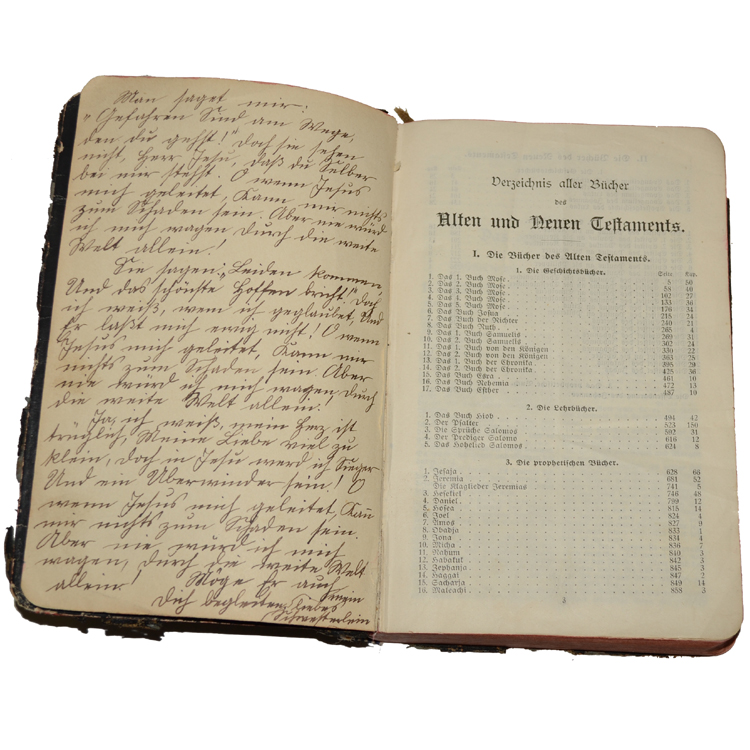 Man saget mir:
„Gefahren sind am Wege,
den du gehst!" Doch sie sehen
nicht, Herr Jesu, daß du selber
bei mir stehst. O wenn Jesus
mich geleitet, Kann mir nichts
zum Schaden sein. Aber nie würd
ich mich wagen durch die weite
Welt allein!
Sie sagen: „Leiden kommen,
Und das schönste Hoffen bricht." Doch
ich weiß, wem ich geglaubet, Und
Er läßt mich ewig nicht! O wenn
Jesus mich geleitet, Kann mir
nichts zum Schaden sein. Aber
nie würd ich mich wagen durch
die weite Welt allein!
Ja, ich weiß, mein Herz ist
trüglich, Meine Liebe viel zu
klein, Doch in Jesu werd ich Sieger
Und ein Überwinder sein! O
wenn Jesus mich geleitet, Kann
mir nichts zum Schaden sein.
Aber nie würd ich mich
wagen, durch die weite Welt
allein! Möge Er auch
Dich begleiten, liebes
Schwesterlein
Verzeichnis aller Bücher
des
Alten und Neuen Testaments.
I. Die Bücher des Alten Testaments.
1. Die Geschichtsbücher. Seite Kap.
1. Das 1. Buch Mose 5 50
2. Das 2. Buch Mose 58 40
3. Das 3. Buch Mose 102 27
4. Das 4. Buch Mose 133 36
5. Das 5. Buch Mose 176 34
6. Das Buch Josua 218 24
7. Das Buch der Richter 240 21
8. Das Buch Ruth 265 4
9. Das 1. Buch Samuelis 269 31
10. Das 2. Buch Samuelis 302 24
11. Das 1. Buch von den Königen 330 22
12. Das 2. Buch von den Königen 363 25
13. Das 1. Buch der Chronika 395 29
14. Das 2. Buch der Chronika 425 36
15. Das Buch Esra 461 10
16. Das Buch Nehemia 472 13
17. Das Buch Esther 487 10
2. Die Lehrbücher.
1. Das Buch Hiob 494 42
2. Der Psalter 523 150
3. Die Sprüche Salomos 592 31
4. Der Prediger Salomo 616 12
5. Das Hohelied Salomos 624 8
3. Die prophetischen Bücher.
1. Jesaja 628 66
2. Jeremia 681 52
Die Klaglieder Jeremias 741 5
3. Hesekiel 746 48
4. Daniel 799 12
5. Hosea 815 14
6. Joel 824 4
7. Amos 827 9
8. Obadja 833 1
9. Jona 834 4
10. Micha 836 7
11. Nahum 840 3
12. Habakuk 842 3
13. Zephanja 845 3
14. Haggai 847 2
15. Sacharja 849 14
16. Maleachi 858 3